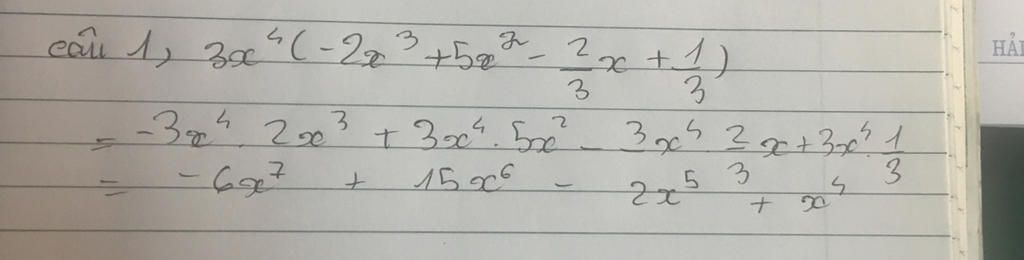 câu 1, 3x⁴(-2x³ + 5x² - 2/3 x + 1/3)
= -3x⁴. 2x³ + 3x⁴. 5x² - 3x⁴ 2/3 x + 3x⁴. 1/3
= -6x⁷ + 15x⁶ - 2x⁵ + x⁴